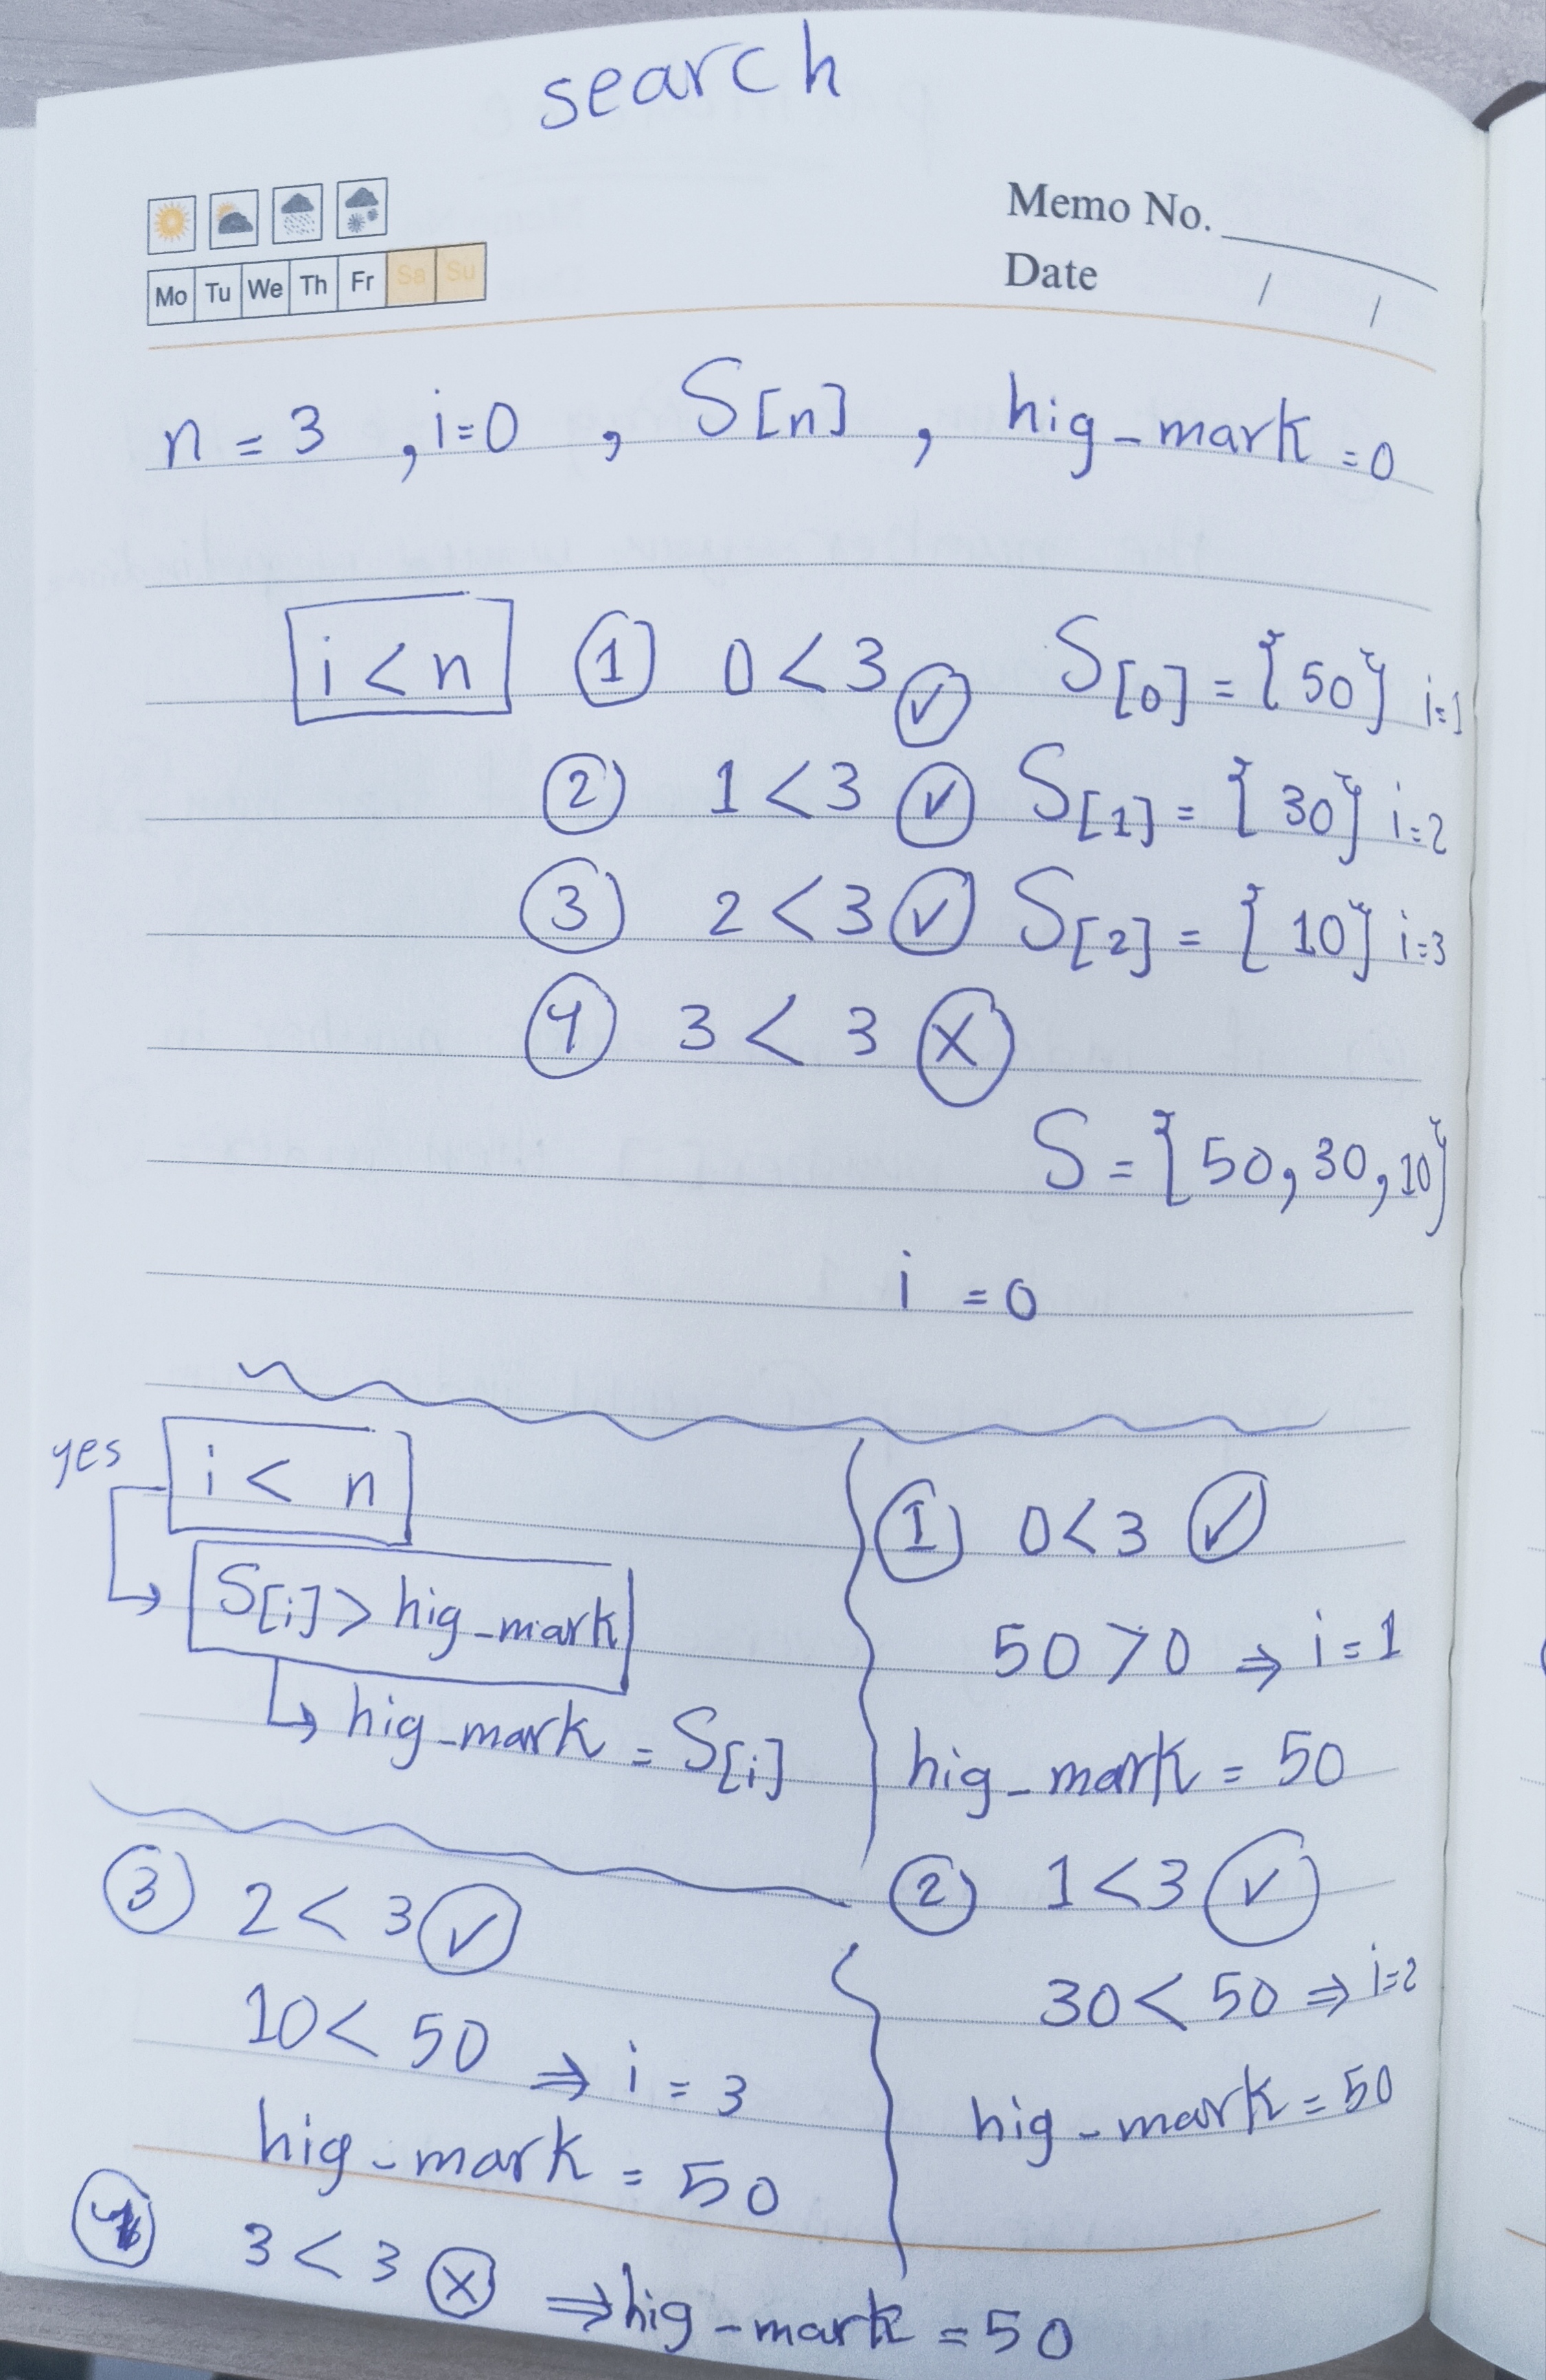 search
Memo No.
Date / /
Mo Tu We Th Fr Sa Su
n = 3 , i=0 , S[n] , hig_mark =0
i < n ① 0 < 3 ✓ S[0] = {50} i=1
② 1 < 3 ✓ S[1] = {30} i=2
③ 2 < 3 ✓ S[2] = {10} i=3
④ 3 < 3 X
S = {50, 30, 10}
i = 0
yes i < n
S[i] > hig_mark
hig_mark = S[i]
① 0 < 3 ✓
50 > 0 ⇒ i = 1
hig_mark = 50
② 1 < 3 ✓
30 < 50 ⇒ i=2
hig_mark = 50
③ 2 < 3 ✓
10 < 50 ⇒ i = 3
hig_mark = 50
④ 3 < 3 X ⇒ hig_mark = 50